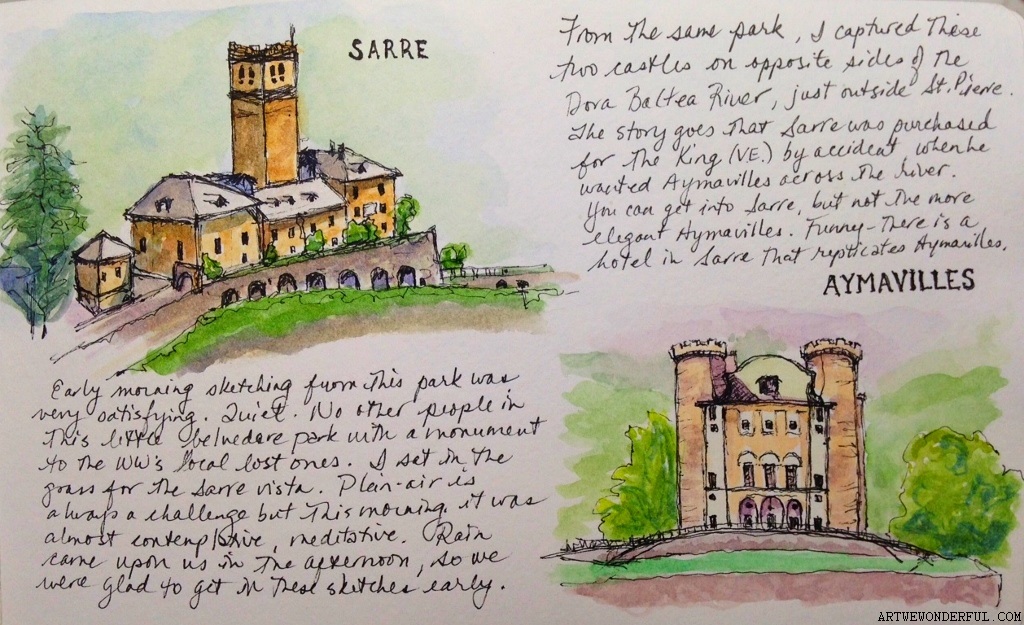 SARRE
From the same park, I captured these
two castles on opposite sides of the
Dora Baltea River, just outside St. Pierre.
The story goes that Sarre was purchased
for the King (V.E.) by accident when he
wanted Aymavilles across the river.
You can get into Sarre, but not the more
elegant Aymavilles. Funny - There is a
hotel in Sarre that replicates Aymavilles.
AYMAVILLES
Early morning sketching from this park was
very satisfying. Quiet. No other people in
this little belvedere park with a monument
to the WW's local lost ones. I sat in the
grass for the Sarre vista. Plein-air is
always a challenge but this morning, it was
almost contemplative, meditative. Rain
came upon us in the afternoon, so we
were glad to get in these sketches early.
ARTWEWONDERFUL.COM